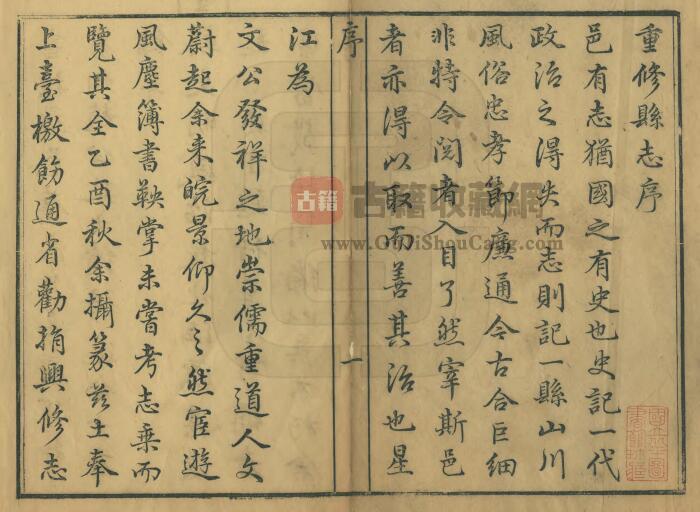 重修縣志序
邑有志猶國之有史也史記一代
政治之得失而志則記一縣山川
風俗忠孝節廉通今古合巨細
非特令閱者入目了然宰斯邑
者亦得以取而善其治也星
序
一
江為
文公發祥之地崇儒重道人文
蔚起余来皖景仰久之然宦遊
風塵簿書鞅掌未嘗考志乗而
覽其全乙酉秋余攝篆茲土奉
上臺檄飭通省勸捐興修志
古籍
古籍收藏網
www.GuJiShouCang.com